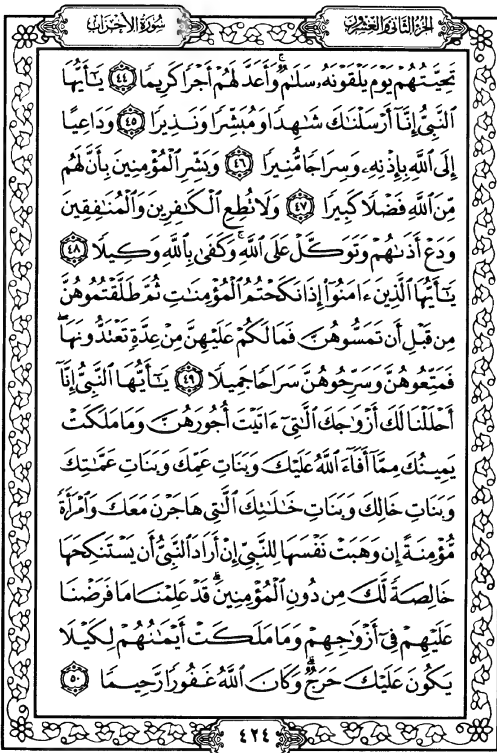 الجزء الثاني والعشرون
سورة الأحزاب
تَحِيَّتُهُمْ يَوْمَ يَلْقَوْنَهُۥ سَلَٰمٌ ۚ وَأَعَدَّ لَهُمْ أَجْرًا كَرِيمًا ٤٤ يَٰٓأَيُّهَا
ٱلنَّبِىُّ إِنَّآ أَرْسَلْنَٰكَ شَٰهِدًا وَمُبَشِّرًا وَنَذِيرًا ٤٥ وَدَاعِيًا
إِلَى ٱللَّهِ بِإِذْنِهِۦ وَسِرَاجًا مُّنِيرًا ٤٦ وَبَشِّرِ ٱلْمُؤْمِنِينَ بِأَنَّ لَهُم
مِّنَ ٱللَّهِ فَضْلًا كَبِيرًا ٤٧ وَلَا تُطِعِ ٱلْكَٰفِرِينَ وَٱلْمُنَٰفِقِينَ
وَدَعْ أَذَىٰهُمْ وَتَوَكَّلْ عَلَى ٱللَّهِ ۚ وَكَفَىٰ بِٱللَّهِ وَكِيلًا ٤٨
يَٰٓأَيُّهَا ٱلَّذِينَ ءَامَنُوٓا۟ إِذَا نَكَحْتُمُ ٱلْمُؤْمِنَٰتِ ثُمَّ طَلَّقْتُمُوهُنَّ
مِن قَبْلِ أَن تَمَسُّوهُنَّ فَمَا لَكُمْ عَلَيْهِنَّ مِنْ عِدَّةٍ تَعْتَدُّونَهَا ۖ
فَمَتِّعُوهُنَّ وَسَرِّحُوهُنَّ سَرَاحًا جَمِيلًا ٤٩ يَٰٓأَيُّهَا ٱلنَّبِىُّ إِنَّآ
أَحْلَلْنَا لَكَ أَزْوَٰجَكَ ٱلَّٰتِىٓ ءَاتَيْتَ أُجُورَهُنَّ وَمَا مَلَكَتْ
يَمِينُكَ مِمَّآ أَفَآءَ ٱللَّهُ عَلَيْكَ وَبَنَاتِ عَمِّكَ وَبَنَاتِ عَمَّٰتِكَ
وَبَنَاتِ خَالِكَ وَبَنَاتِ خَٰلَٰتِكَ ٱلَّٰتِى هَاجَرْنَ مَعَكَ وَٱمْرَأَةً
مُّؤْمِنَةً إِن وَهَبَتْ نَفْسَهَا لِلنَّبِىِّ إِنْ أَرَادَ ٱلنَّبِىُّ أَن يَسْتَنكِحَهَا
خَالِصَةً لَّكَ مِن دُونِ ٱلْمُؤْمِنِينَ ۗ قَدْ عَلِمْنَا مَا فَرَضْنَا
عَلَيْهِمْ فِىٓ أَزْوَٰجِهِمْ وَمَا مَلَكَتْ أَيْمَٰنُهُمْ لِكَيْلَا
يَكُونَ عَلَيْكَ حَرَجٌ ۗ وَكَانَ ٱللَّهُ غَفُورًا رَّحِيمًا ٥٠
٤٢٤